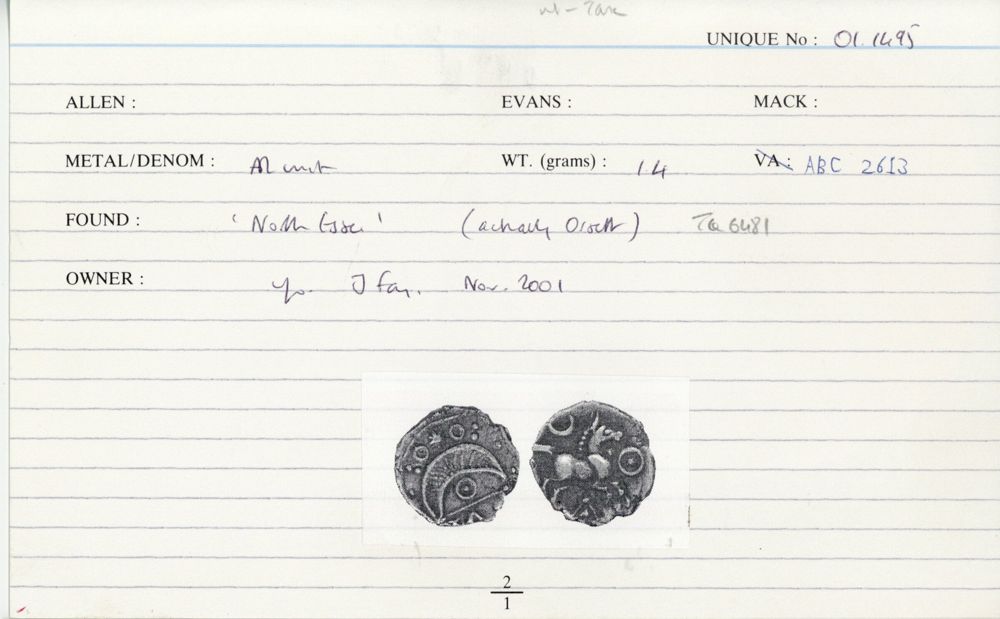 UNIQUE No : 01.1495
ALLEN : EVANS : MACK :
METAL/DENOM : AR unit WT. (grams) : 1.4 VA : ABC 2613
FOUND : 'North Essex' (actually Orsett) TQ 6481
OWNER : J Fay. Nov. 2001
2
1